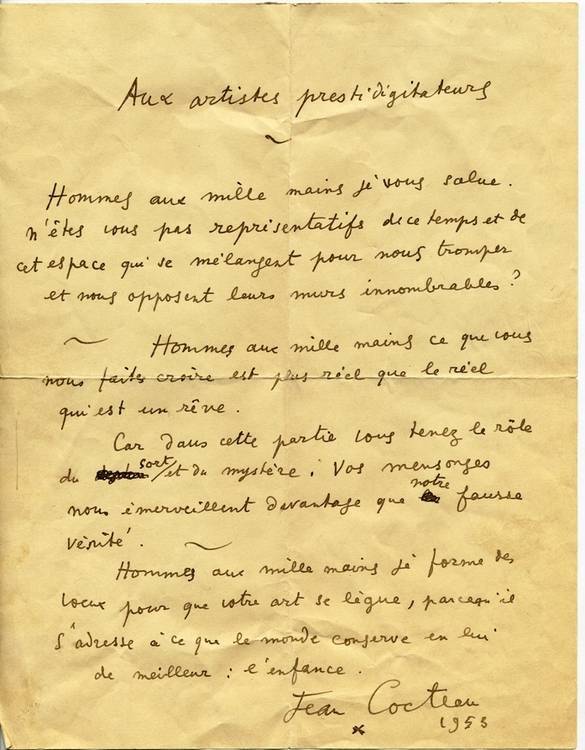 Aux artistes prestidigitateurs
Hommes aux mille mains je vous salue.
n'êtes vous pas représentatifs de ce temps et de
cet espace qui se mélangent pour nous tromper
et nous opposent leurs murs innombrables?
Hommes aux mille mains ce que vous
nous faites croire est plus réel que le réel
qui est un rêve.
Car dans cette partie vous tenez le rôle
du sort et du mystère. Vos mensonges
nous émerveillent davantage que notre fausse
vérité.
Hommes aux mille mains je forme des
voeux pour que votre art se lègue, parcequ'il
s'adresse à ce que le monde conserve en lui
de meilleur : l'enfance.
Jean Cocteau
1953